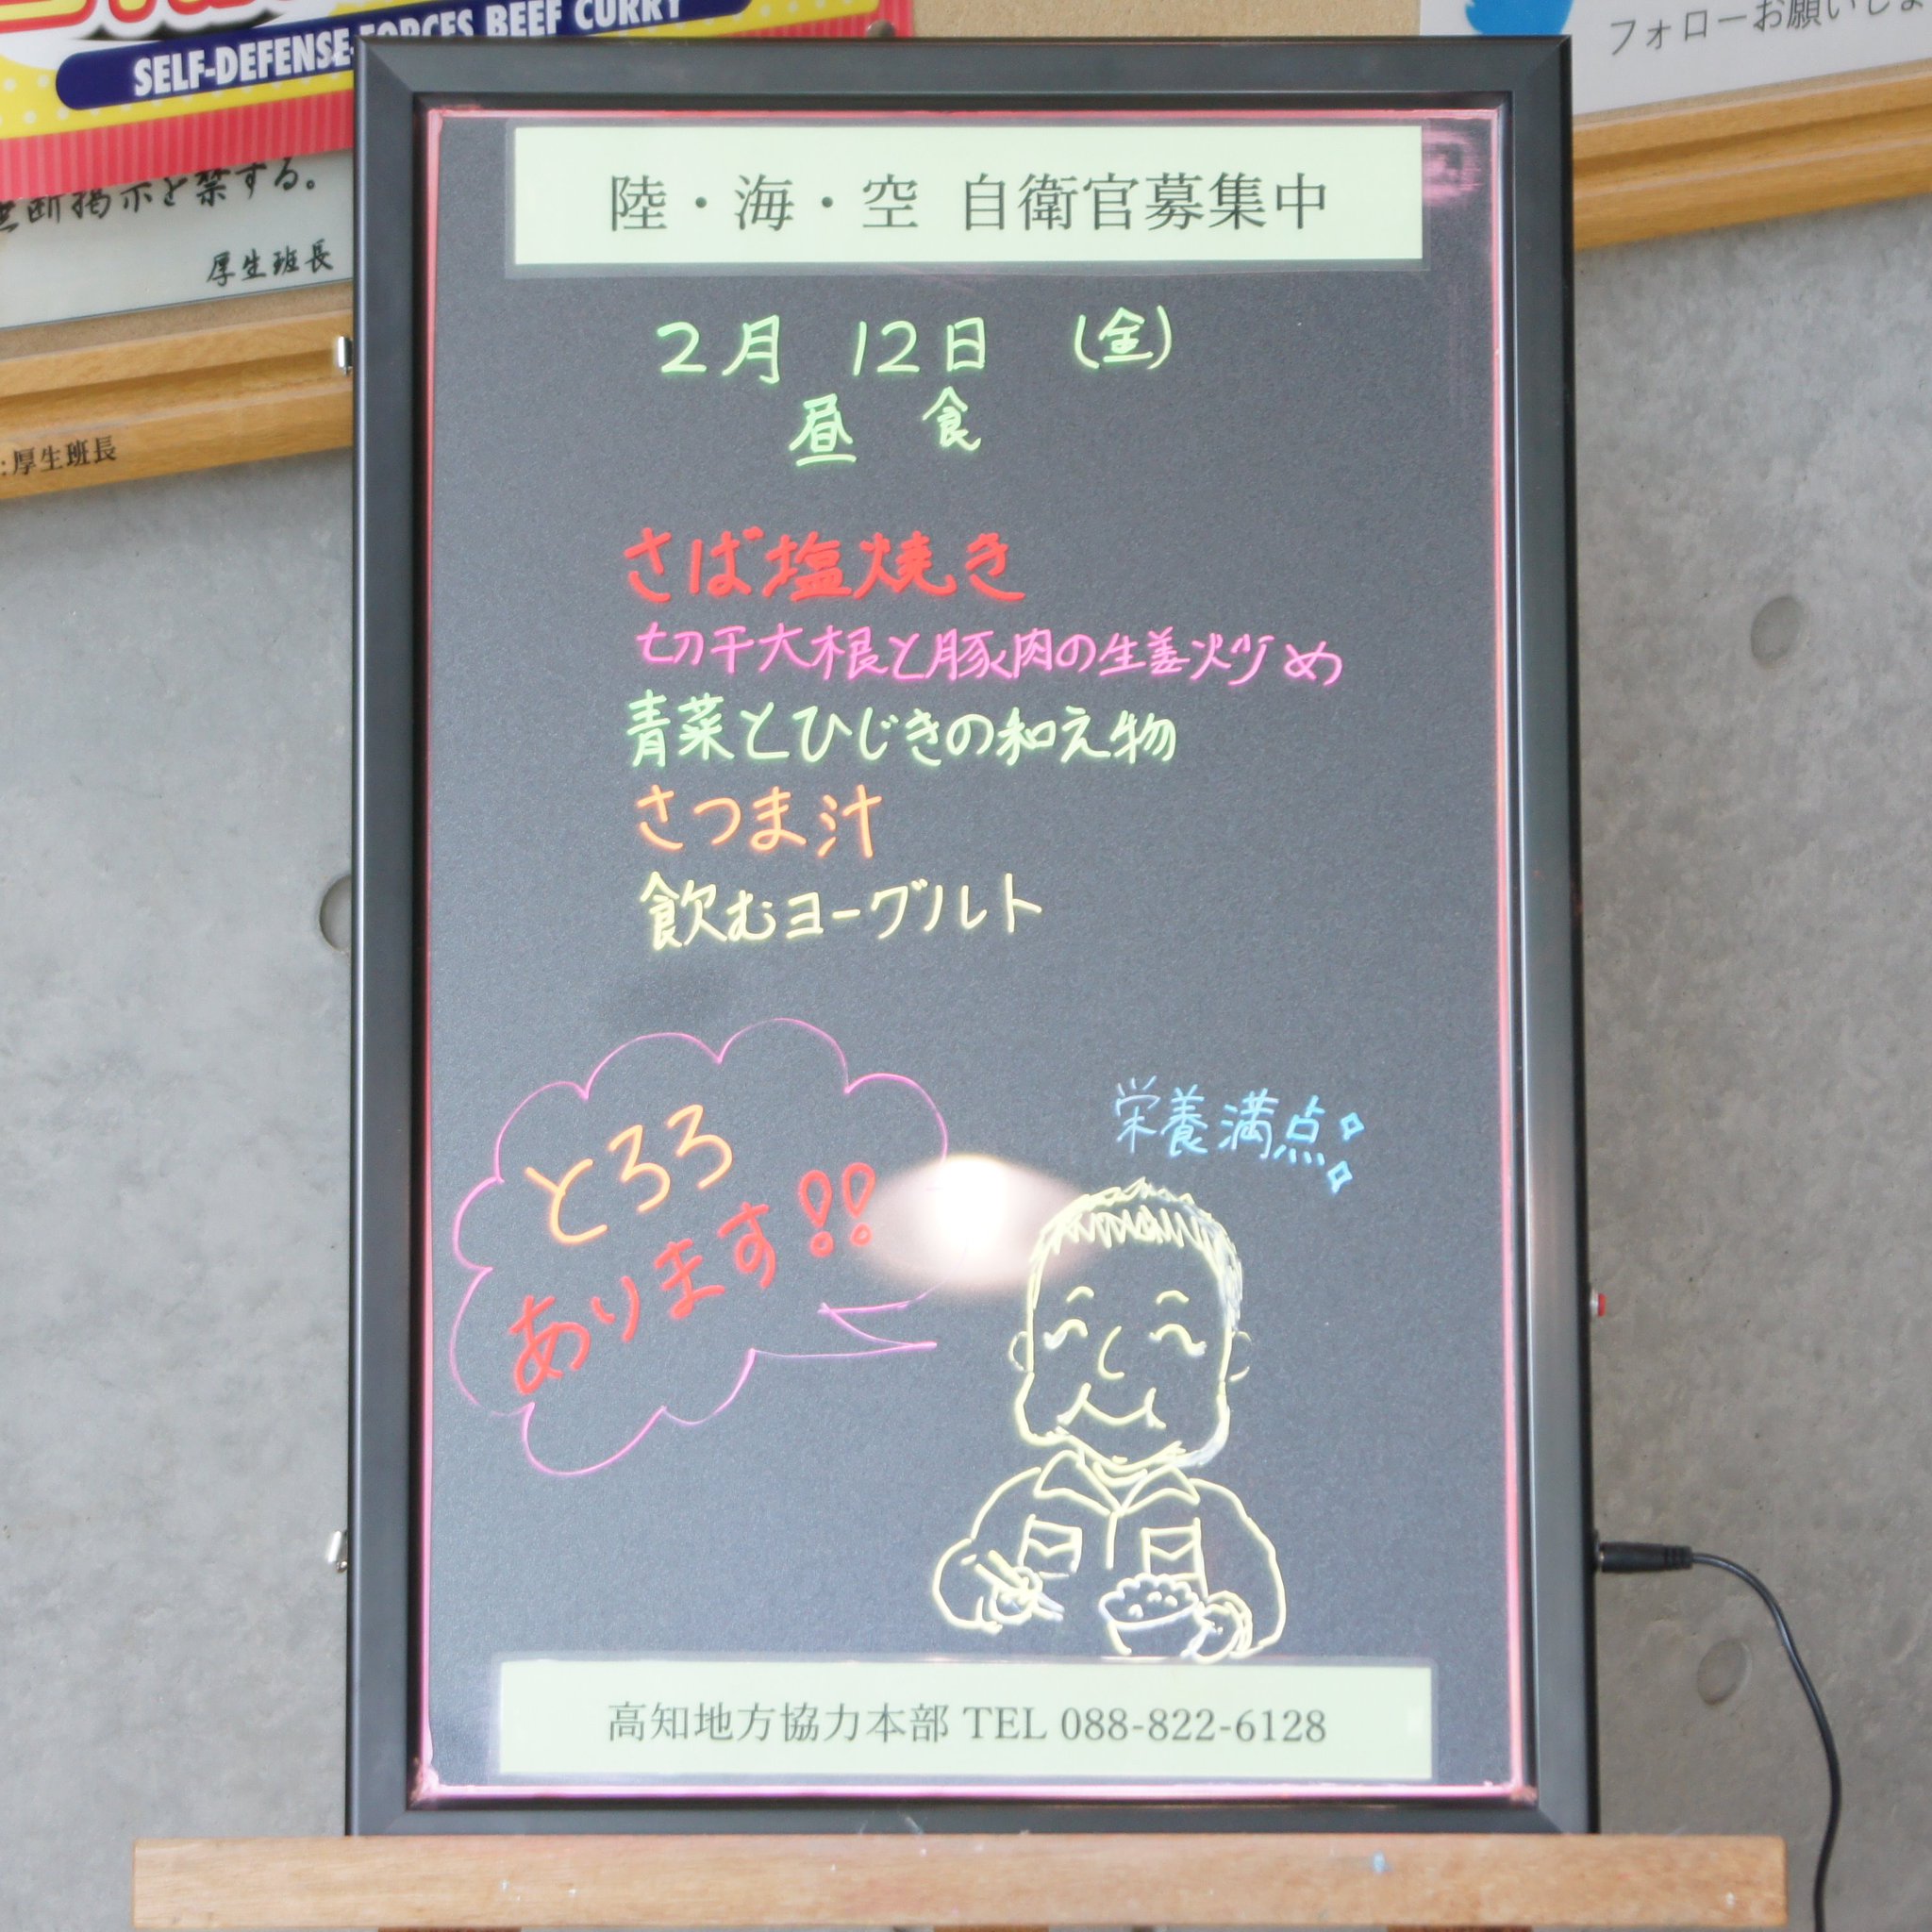 SELF-DEFENSE-FORCES BEEF CURRY
フォローお願いしま
断掲示を禁する。
厚生班長
:厚生班長
陸・海・空 自衛官募集中
2月 12日 (金)
昼 食
さば塩焼き
切干大根と豚肉の生姜炒め
青菜とひじきの和え物
さつま汁
飲むヨーグルト
とろろ
あります!!
栄養満点
高知地方協力本部 TEL 088-822-6128